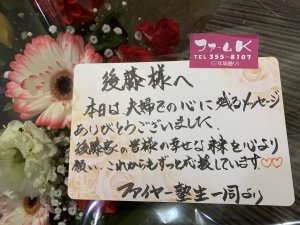 ファームK
TEL 355-8107
後藤様へ
本日は、夫婦での心に残るメッセージ
ありがとうございました。
後藤家の皆様の幸せな未来を心より
願い、これからもずっと応援しています。♡♡
ファイヤー塾生一同より